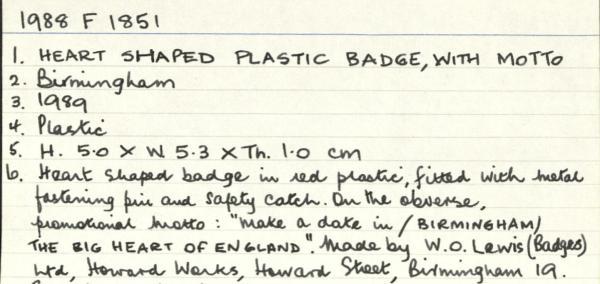 1988 F 1851
1. HEART SHAPED PLASTIC BADGE, WITH MOTTO
2. Birmingham
3. 1989
4. Plastic
5. H. 5.0 X W 5.3 X Th. 1.0 cm
6. Heart shaped badge in red plastic, fitted with metal
fastening pin and safety catch. On the obverse,
promotional motto : "Make a date in / BIRMINGHAM /
THE BIG HEART OF ENGLAND". Made by W.O. Lewis (Badges)
Ltd, Howard Works, Howard Street, Birmingham 19.